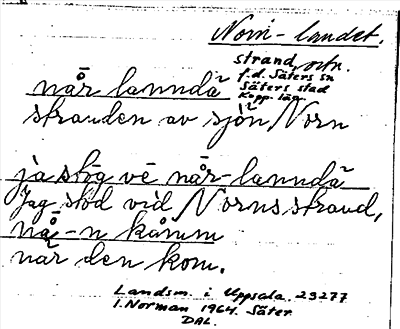 Norn-landet.
strand, ortn.
f.d. Säters sn
Säters stad
Kopp. län
nå̀r lanndä
stranden av sjön Norn
ja stög vē nå̀r-lanndä
Jag stod vid Norns strand,
nä-n kåmm
när den kom.
Landsm. i Uppsala. 23277
I. Norman 1964. Säter.
DAL.